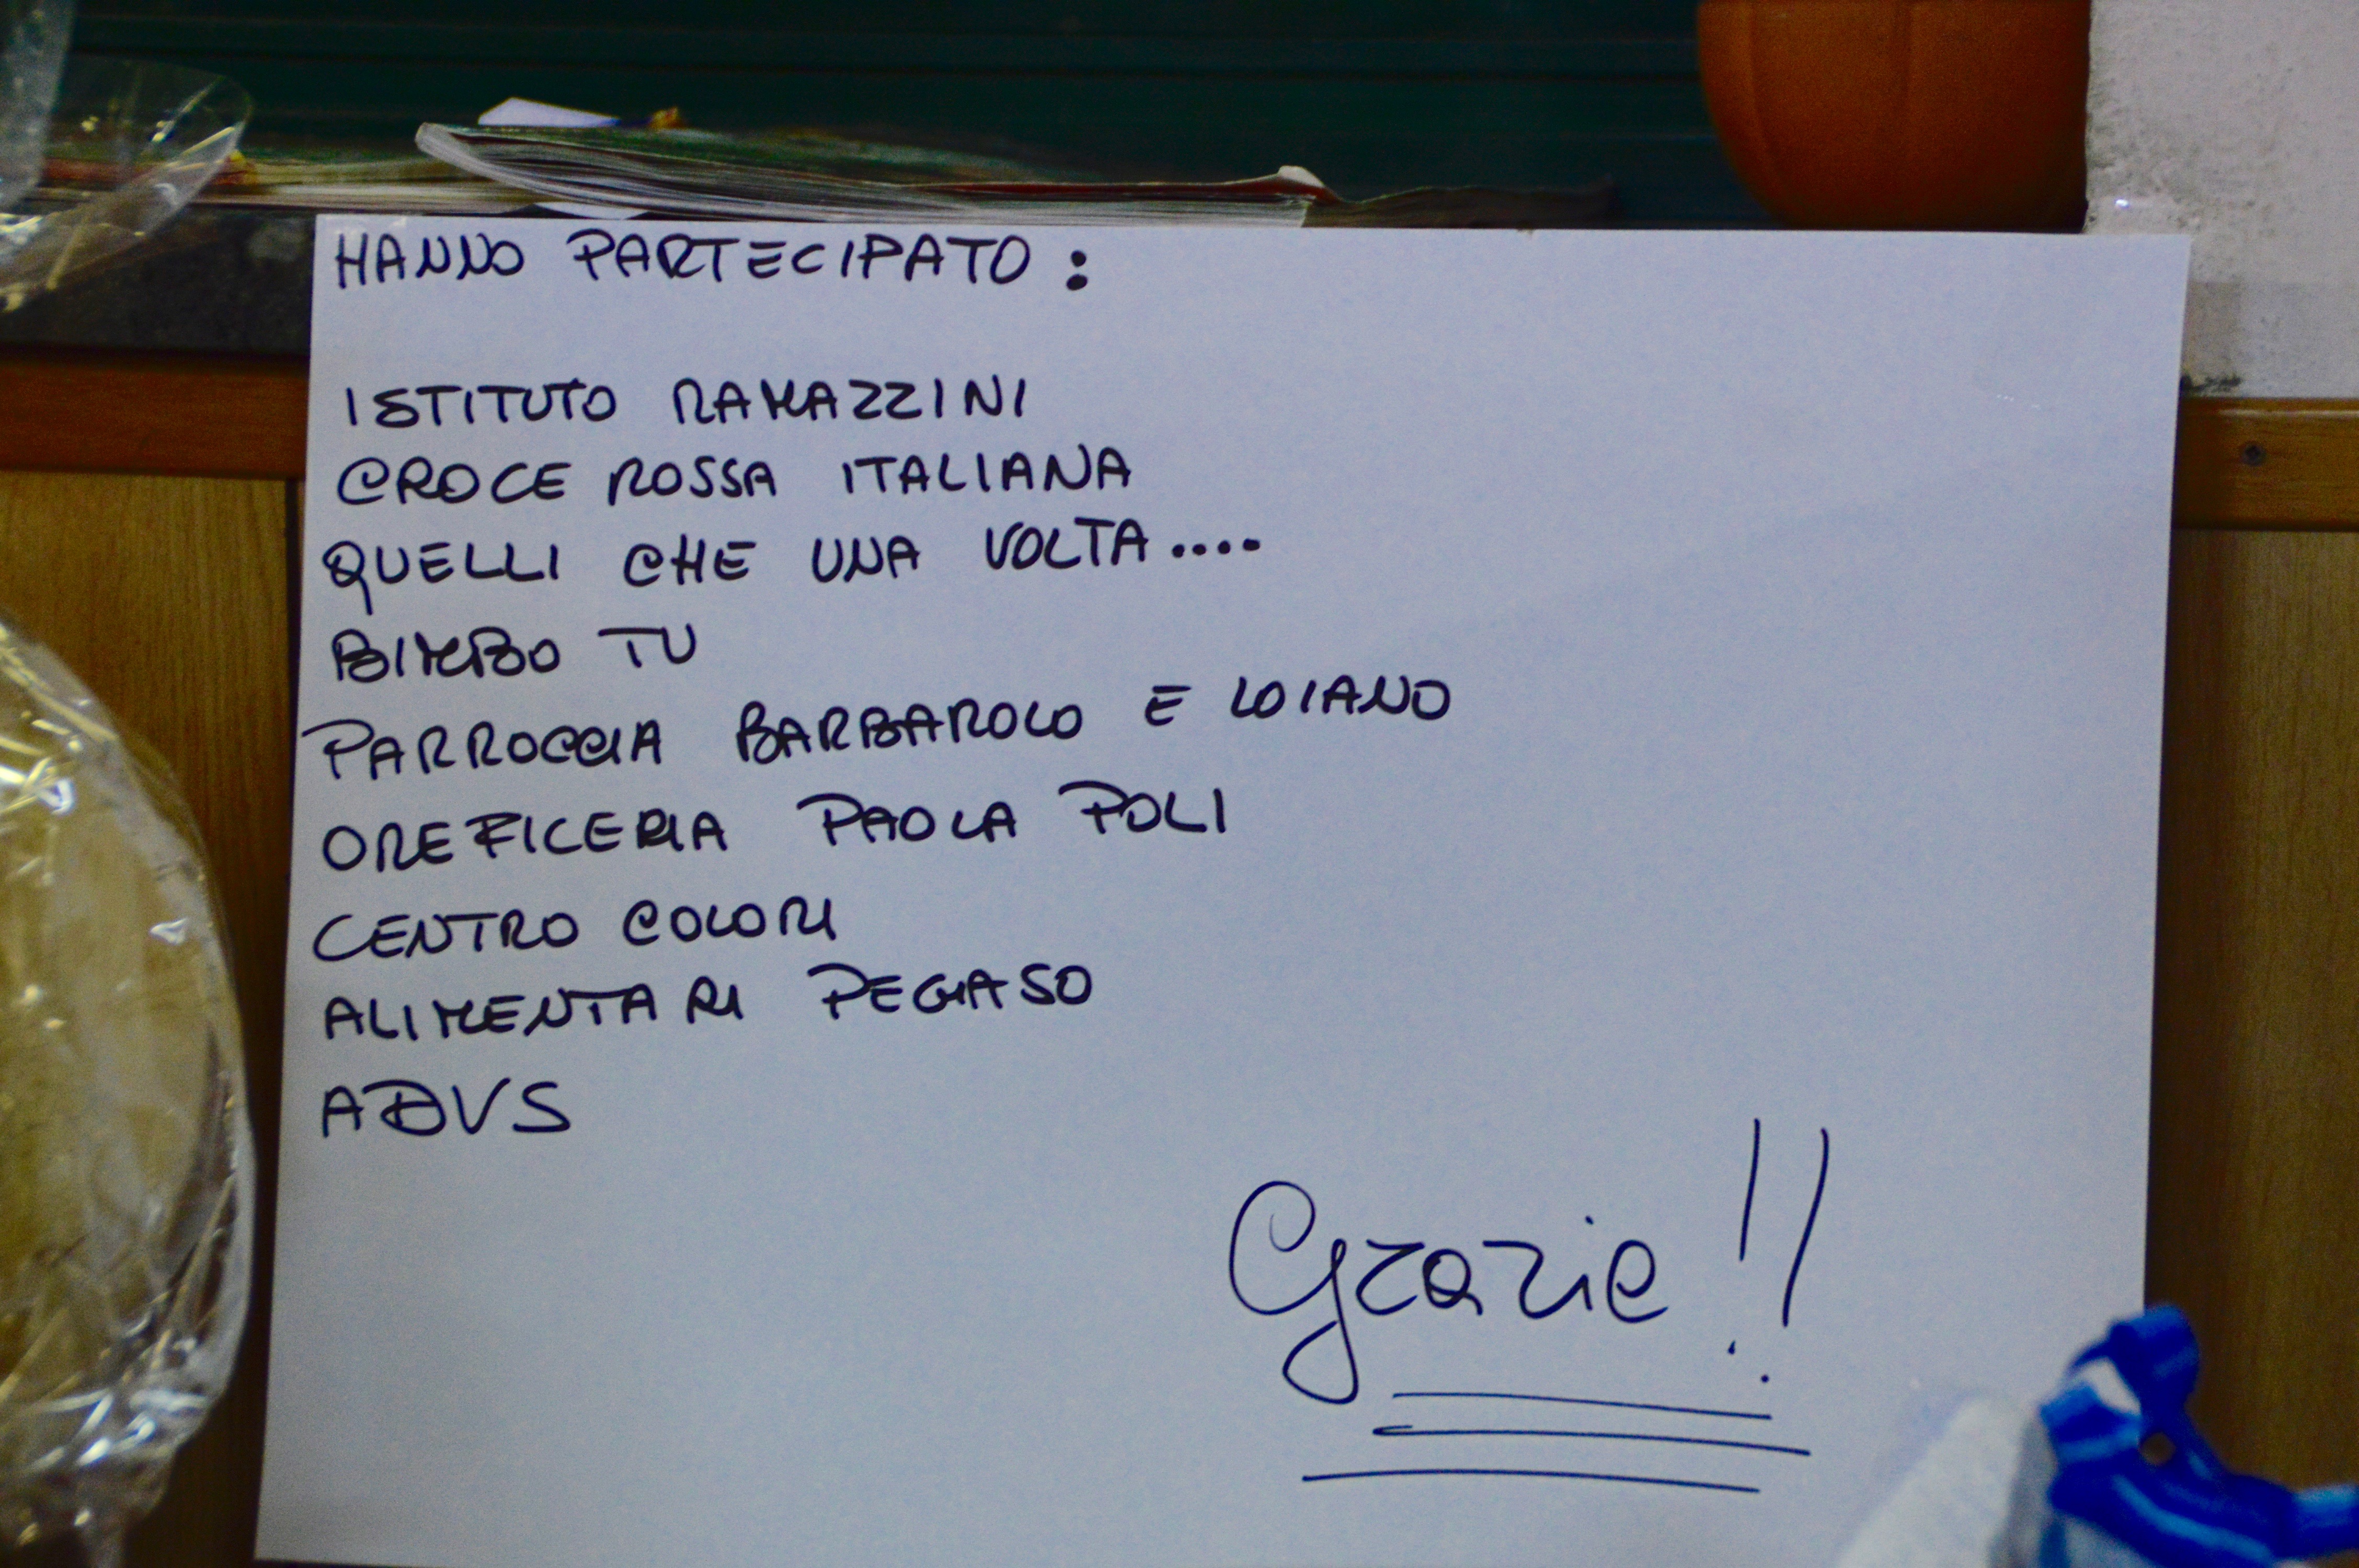 HANNO PARTECIPATO :
ISTITUTO RAMAZZINI
CROCE ROSSA ITALIANA
QUELLI CHE UNA VOLTA....
BIMBO TU
PARROCCIA BARBAROLO E LOIANO
OREFICERIA PAOLA POLI
CENTRO COLORI
ALIMENTARI PEGASO
ADVS
Grazie!!